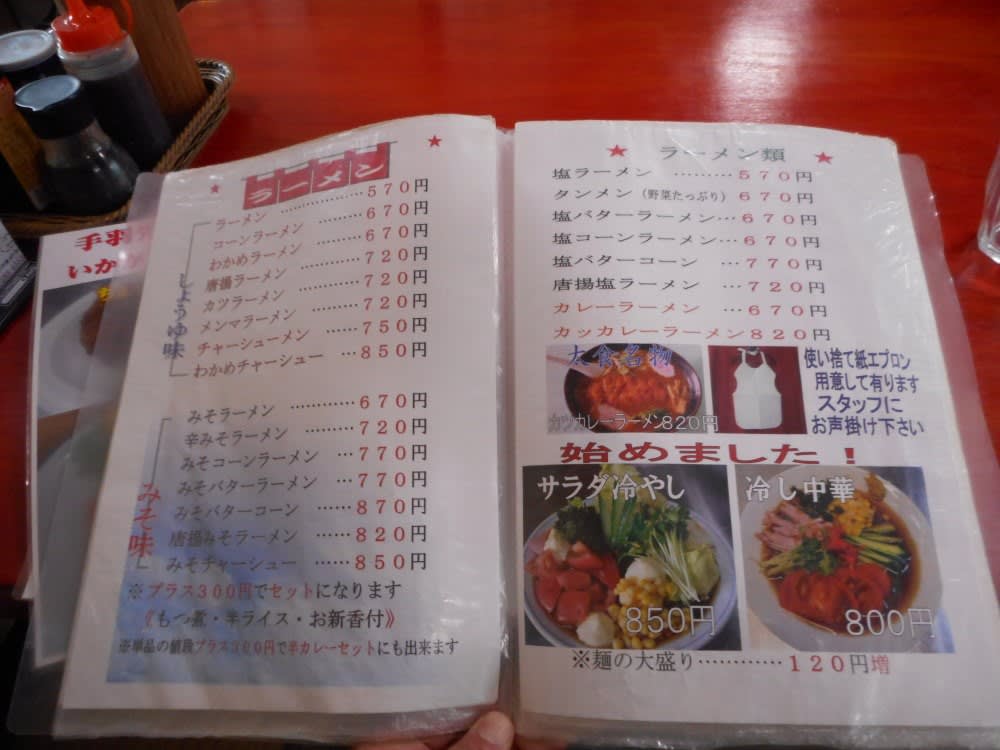 手羽
いか
ラーメン
しょうゆ味
ラーメン ……………570円
コーンラーメン 670円
わかめラーメン …………670円
唐揚ラーメン …………720円
カツラーメン …………720円
メンマラーメン …………720円
チャーシューメン …750円
わかめチャーシュー …850円
みそ味
みそラーメン …………670円
辛みそラーメン …………720円
みそコーンラーメン …770円
みそバターラーメン …770円
みそバターコーン ……870円
唐揚みそラーメン ……820円
みそチャーシュー ……850円
※プラス300円でセットになります
《もつ煮・半ライス・お新香付》
※単品の値段プラス300円で半カレーセットにも出来ます
★ ラーメン類 ★
塩ラーメン ………570円
タンメン(野菜たっぷり) 670円
塩バターラーメン…670円
塩コーンラーメン…670円
塩バターコーン …770円
唐揚塩ラーメン …720円
カレーラーメン …670円
カツカレーラーメン820円
大食名物
カツカレーラーメン820円
使い捨て紙エプロン
用意して有ります
スタッフに
お声掛け下さい
始めました!
サラダ冷やし
850円
冷し中華
800円
※麺の大盛り…………120円増